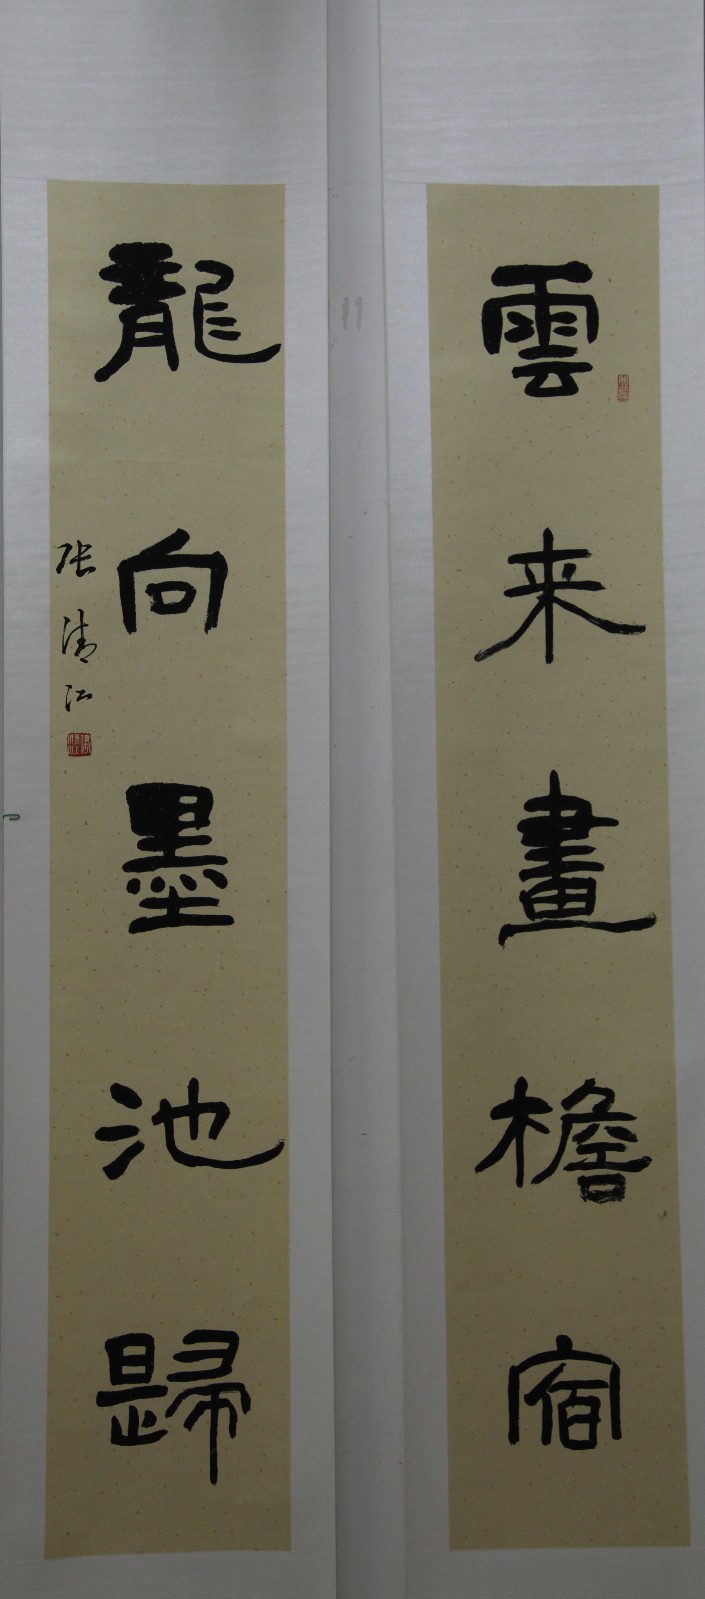 雲来畫檐宿
龍向墨池歸
张清江